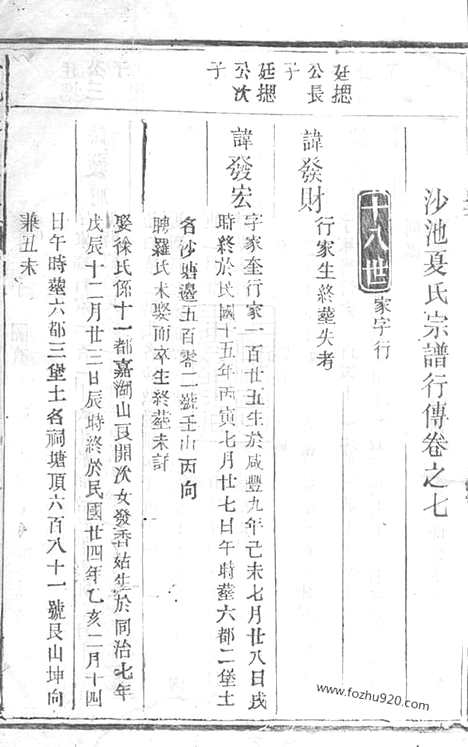 沙池夏氏宗譜行傳卷之七
十八世
家字行
廷摠
公長
子
諱發財
行家生終塟失考
廷摠
公次
子
諱發宏
字家奎行家一百廿五生於咸豐九年己未七月廿八日戌
時終於民國十五年丙寅七月廿七日午時塟六都二堡土
名沙塘邊五百零二號壬山丙向
聘羅氏未娶而卒生終塟未詳
娶徐氏係十一都嘉湖山良開次女發香姑生於同治七年
戊辰十二月廿三日辰時終於民國廿四年乙亥二月十四
日午時塟六都三堡土名祠塘頂六百八十一號艮山坤向
兼丑未
www.fozhu920.com